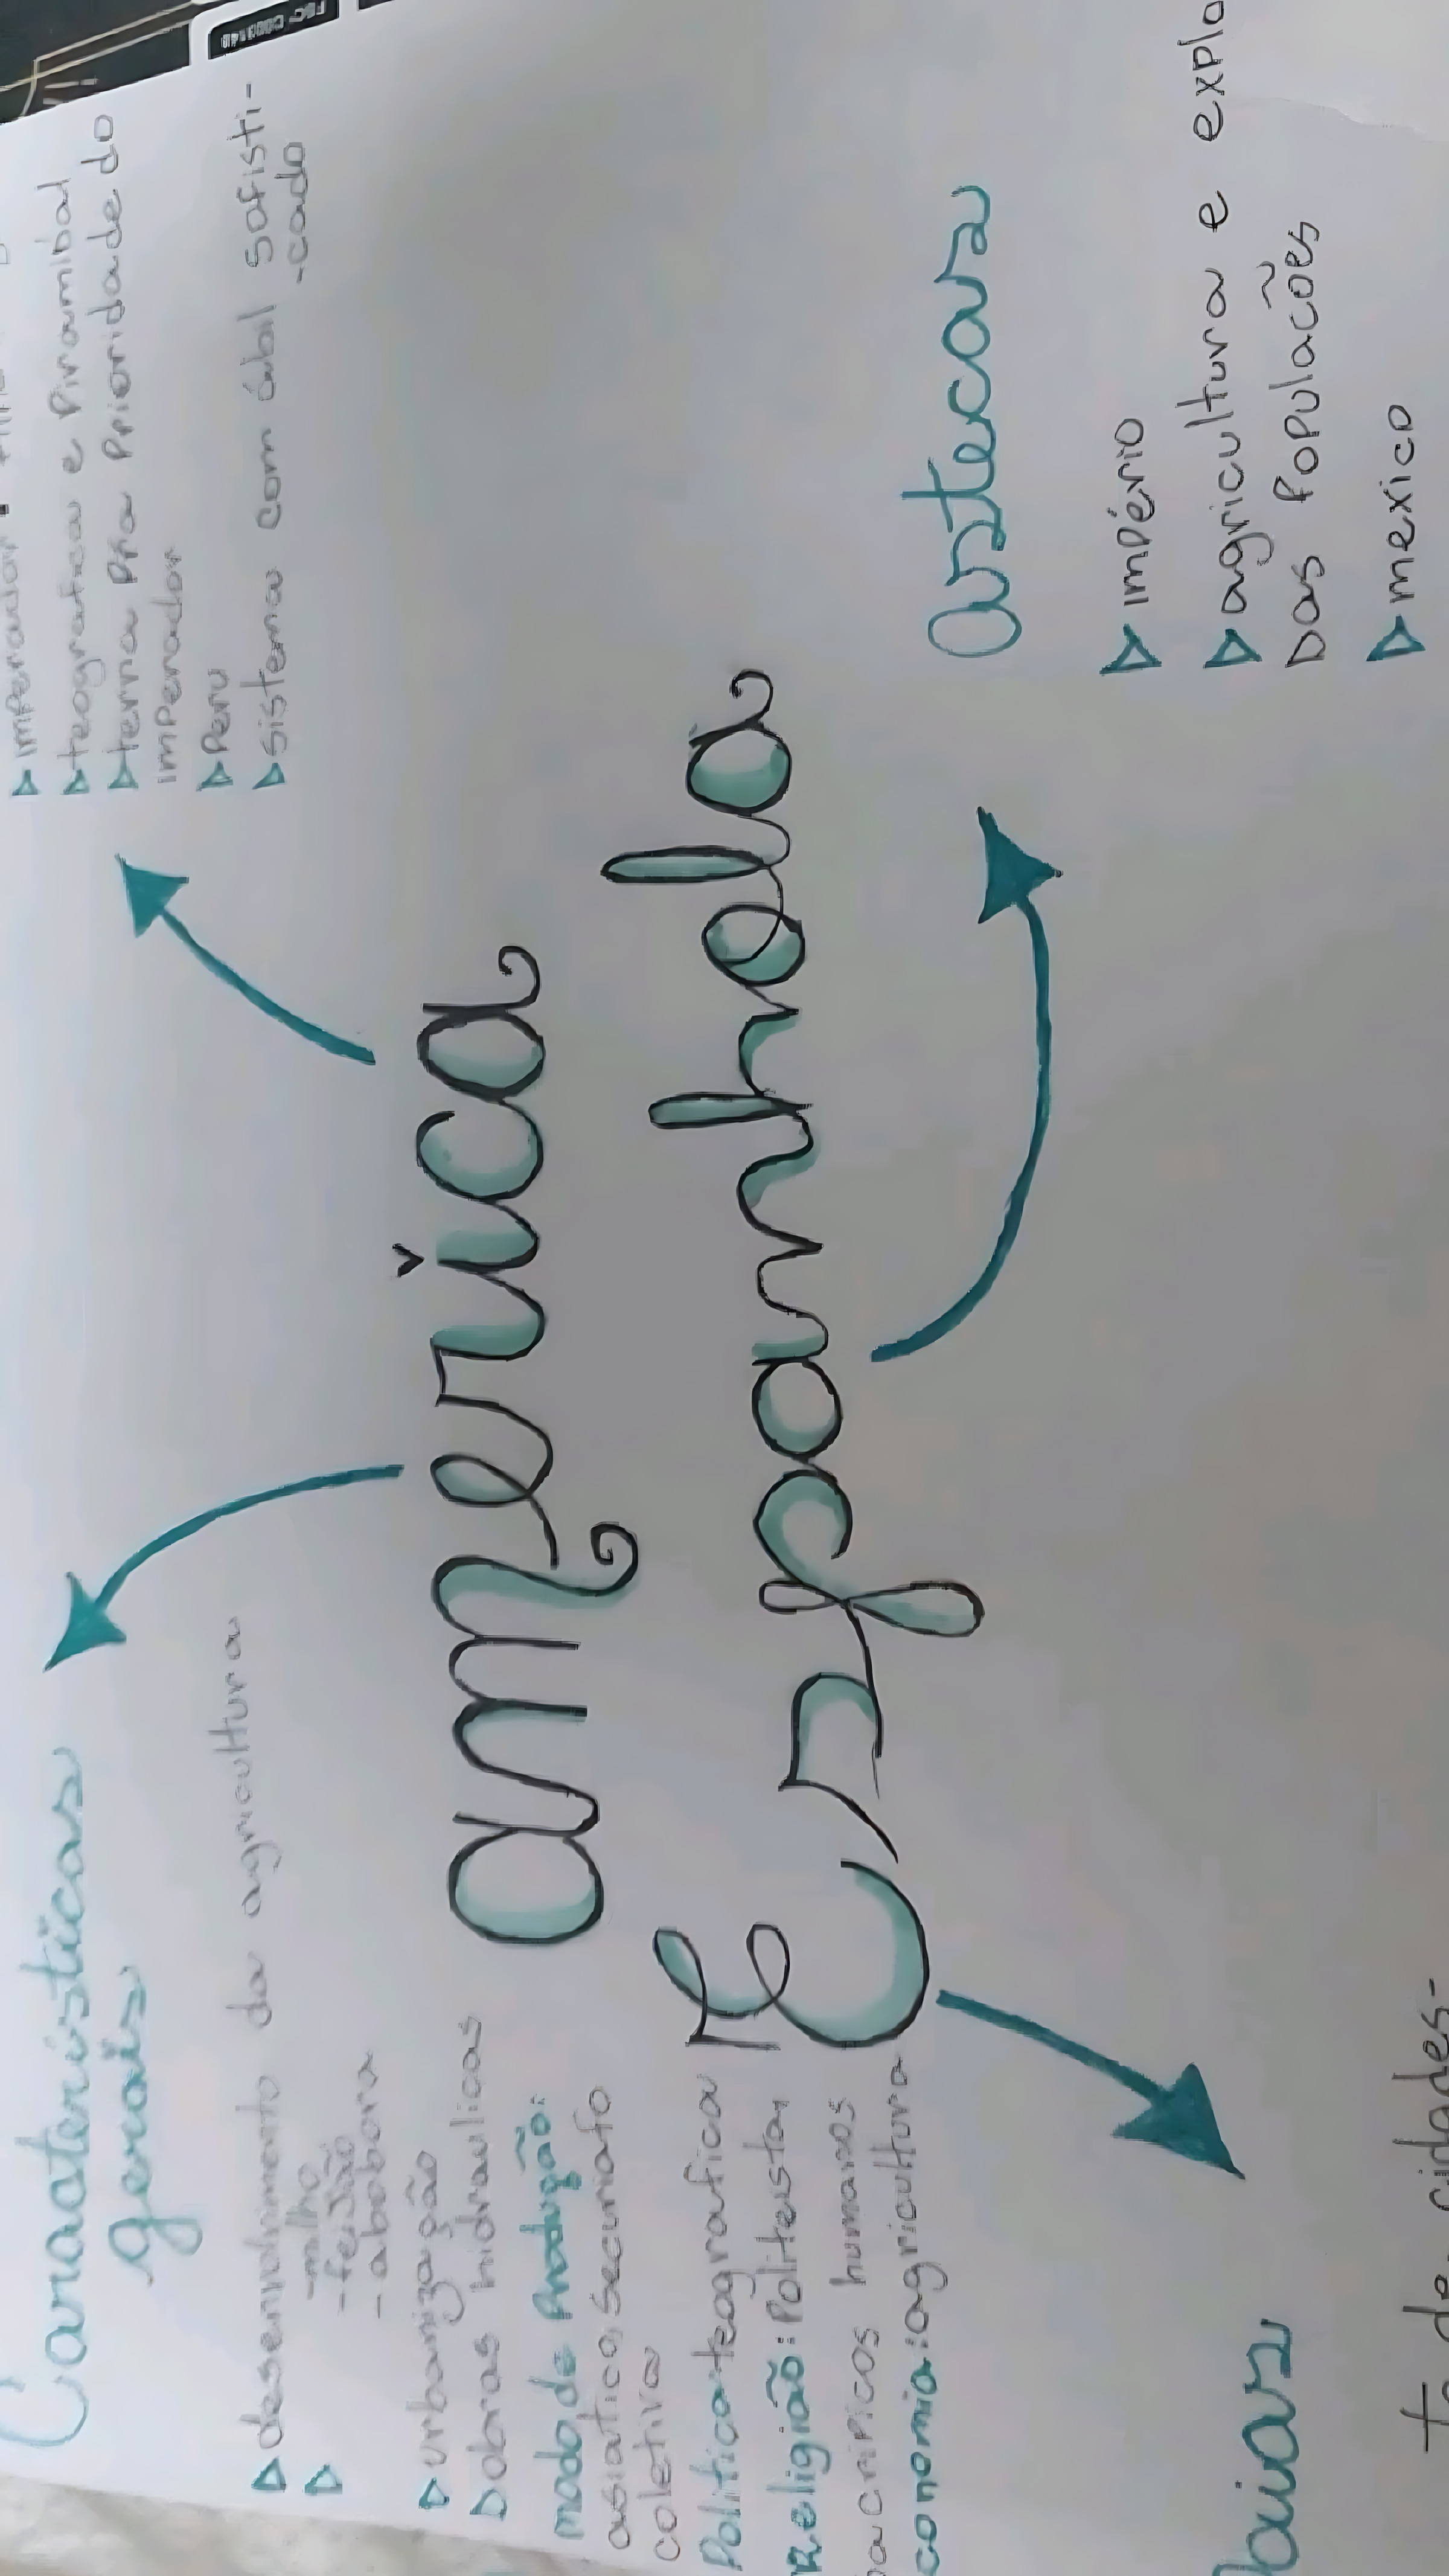 Caraterísticas
gerais
desenvolvimento da agricultura
-milho
-feijão
-abobora
urbanização
obras hidraulicas
modo de Produção:
asiatico, Securiato
coletiva
Politica: teografica
Religião: Politeista,
humanos
conomia: agricultura
america
Espanhola
imperador
teografica e Piramibal
terra Pra Prioridade do
imperador
Peru
sistema com ábil sofisti-
-cado
astecas
império
agricultura e explo
Das Populacões
mexico
aias
de cidades-